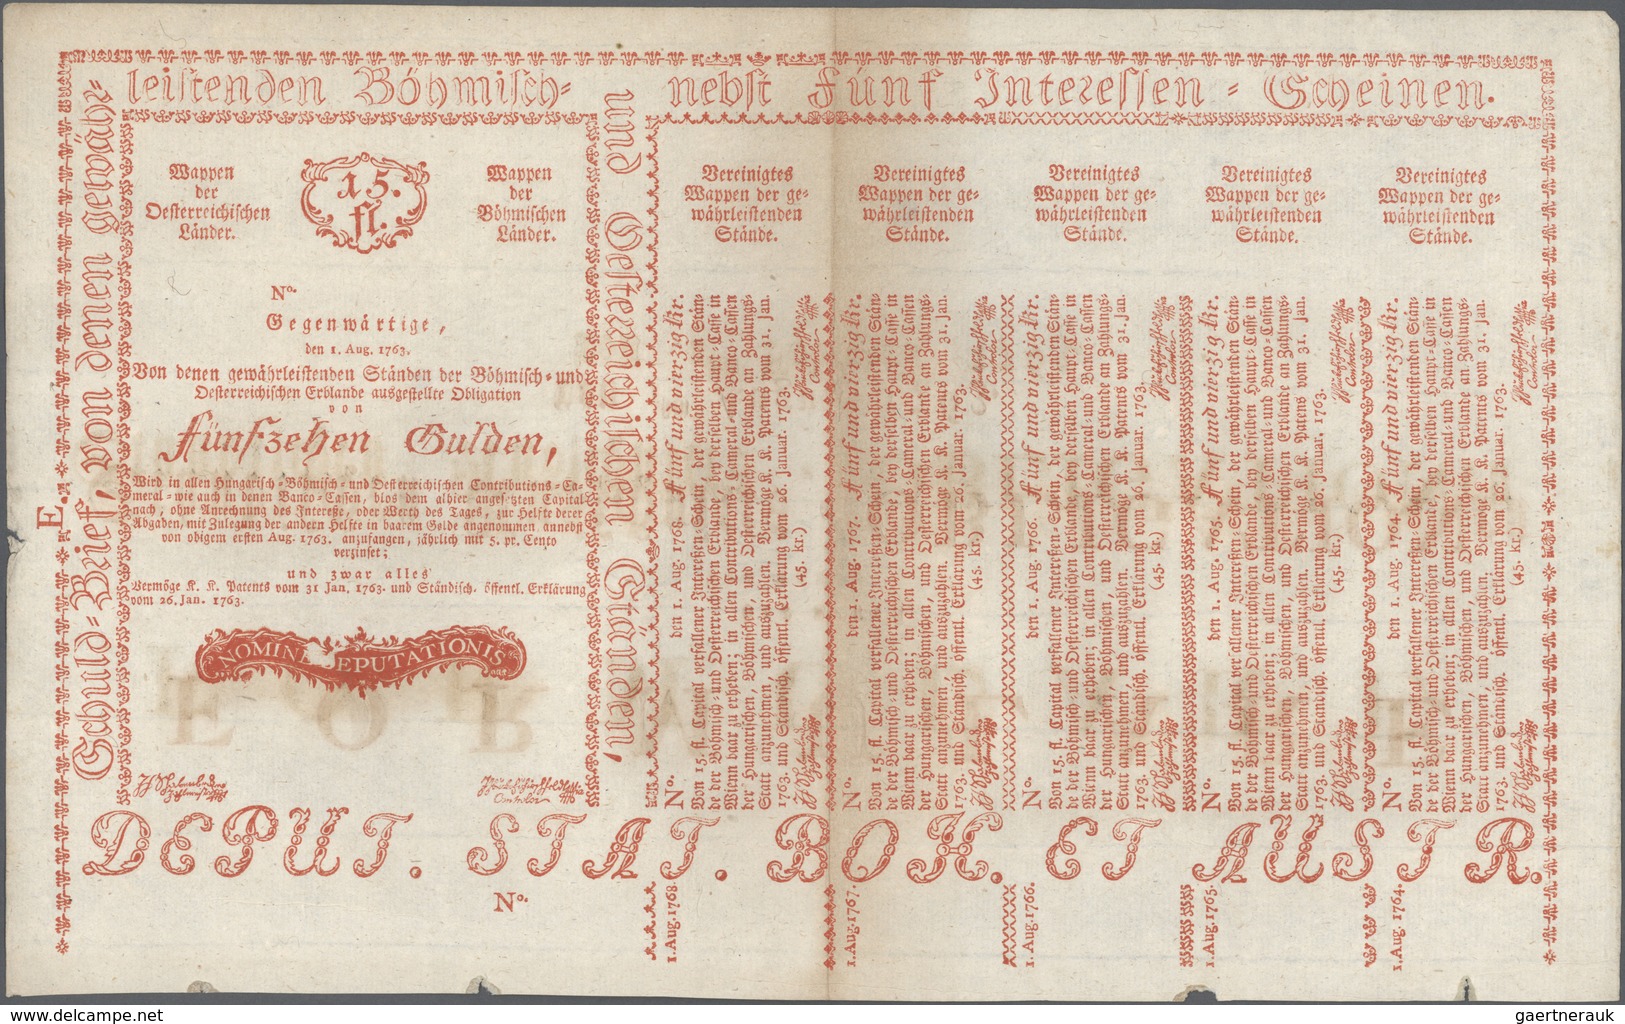 Schuld-Brief, von denen gewähr-
leistenden Böhmisch-
und Oesterreichischen Ständen,
nebst Fünf Interessen-Scheinen.
E.
Wappen
der
Oesterreichischen
Länder.
15.
fl.
Wappen
der
Böhmischen
Länder.
No.
Gegenwärtige,
den 1. Aug. 1763.
Von denen gewährleistenden Ständen der Böhmisch- und
Oesterreichischen Erblande ausgestellte Obligation
von
Fünfzehen Gulden,
Wird in allen Hungarisch-Böhmisch- und Oesterreichischen Contributions-Ca-
meral- wie auch in denen Banco-Cassen, blos dem alhier angesetzten Capital
nach, ohne Anrechnung des Interesse, oder Werth des Tages, zur Helfte derer
Abgaben, mit Zulegung der andern Helfte in baarem Gelde angenommen, annebst
von obigem ersten Aug. 1763. anzufangen, jährlich mit 5. pr. Cento
verzinset;
und zwar alles
Vermöge K. K. Patents vom 31 Jan. 1763. und Ständisch. öffentl. Erklärung
vom 26. Jan. 1763.
NOMINE EPUTATIONIS
Controlor
Vereinigtes
Wappen der ge-
währleistenden
Stände.
No. den 1. Aug. 1768. Fünf und vierzig Kr.
Von 15. fl. Capital verfallener Interessen-Schein, der gewährleistenden Stän-
de der Böhmisch- und Oesterreichischen Erblande, bey derselben Haupt-Casse in
Wienn baar zu erheben; in allen Contributions-Cameral- und Banco-Cassen
der Hungarischen, Böhmischen, und Oesterreichischen Erblande an Zahlungs-
Statt anzunehmen, und auszuzahlen. Vermöge K. K. Patents vom 31. Jan.
1763. und Ständisch. öffentl. Erklärung vom 26. Januar. 1763.
(45. kr.)
Controlor
Vereinigtes
Wappen der ge-
währleistenden
Stände.
No. den 1. Aug. 1767. Fünf und vierzig Kr.
Von 15. fl. Capital verfallener Interessen-Schein, der gewährleistenden Stän-
de der Böhmisch- und Oesterreichischen Erblande, bey derselben Haupt-Casse in
Wienn baar zu erheben; in allen Contributions-Cameral- und Banco-Cassen
der Hungarischen, Böhmischen, und Oesterreichischen Erblande an Zahlungs-
Statt anzunehmen, und auszuzahlen. Vermöge K. K. Patents vom 31. Jan.
1763. und Ständisch. öffentl. Erklärung vom 26. Januar. 1763.
(45. kr.)
Controlor
Vereinigtes
Wappen der ge-
währleistenden
Stände.
No. den 1. Aug. 1766. Fünf und vierzig Kr.
Von 15. fl. Capital verfallener Interessen-Schein, der gewährleistenden Stän-
de der Böhmisch- und Oesterreichischen Erblande, bey derselben Haupt-Casse in
Wienn baar zu erheben; in allen Contributions-Cameral- und Banco-Cassen
der Hungarischen, Böhmischen und Oesterreichischen Erblande an Zahlungs-
Statt anzunehmen, und auszuzahlen. Vermöge K. K. Patents vom 31. Jan.
1763. und Ständisch. öffentl. Erklärung vom 26. Januar. 1763.
(45. kr.)
Controlor
Vereinigtes
Wappen der ge-
währleistenden
Stände.
No. den 1. Aug. 1765. Fünf und vierzig Kr.
Von 15. fl. Capital verfallener Interessen-Schein, der gewährleistenden Stän-
de der Böhmisch- und Oesterreichischen Erblande, bey derselben Haupt-Casse in
Wienn baar zu erheben; in allen Contributions-Cameral- und Banco-Cassen
der Hungarischen, Böhmischen, und Oesterreichischen Erblande an Zahlungs-
Statt anzunehmen, und auszuzahlen. Vermöge K. K. Patents vom 31. Jan.
1763. und Ständisch. öffentl. Erklärung vom 26. Januar. 1763.
(45. kr.)
Controlor
Vereinigtes
Wappen der ge-
währleistenden
Stände.
No. den 1. Aug. 1764. Fünf und vierzig Kr.
Von 15. fl. Capital verfallener Interessen-Schein, der gewährleistenden Stän-
de der Böhmisch- und Oesterreichischen Erblande, bey derselben Haupt-Casse in
Wienn baar zu erheben; in allen Contributions-Cameral- und Banco-Cassen
der Hungarischen, Böhmischen, und Oesterreichischen Erblande an Zahlungs-
Statt anzunehmen, und auszuzahlen. Vermöge K. K. Patents vom 31. Jan.
1763. und Ständisch. öffentl. Erklärung vom 26. Januar. 1763.
(45. kr.)
Controlor
DEPUT. STAT. BOH. ET AUSTR.
No.
1. Aug. 1768.
1. Aug. 1767.
1. Aug. 1766.
1. Aug. 1765.
1. Aug. 1764.
www.delcampe.net
gaertnerauk